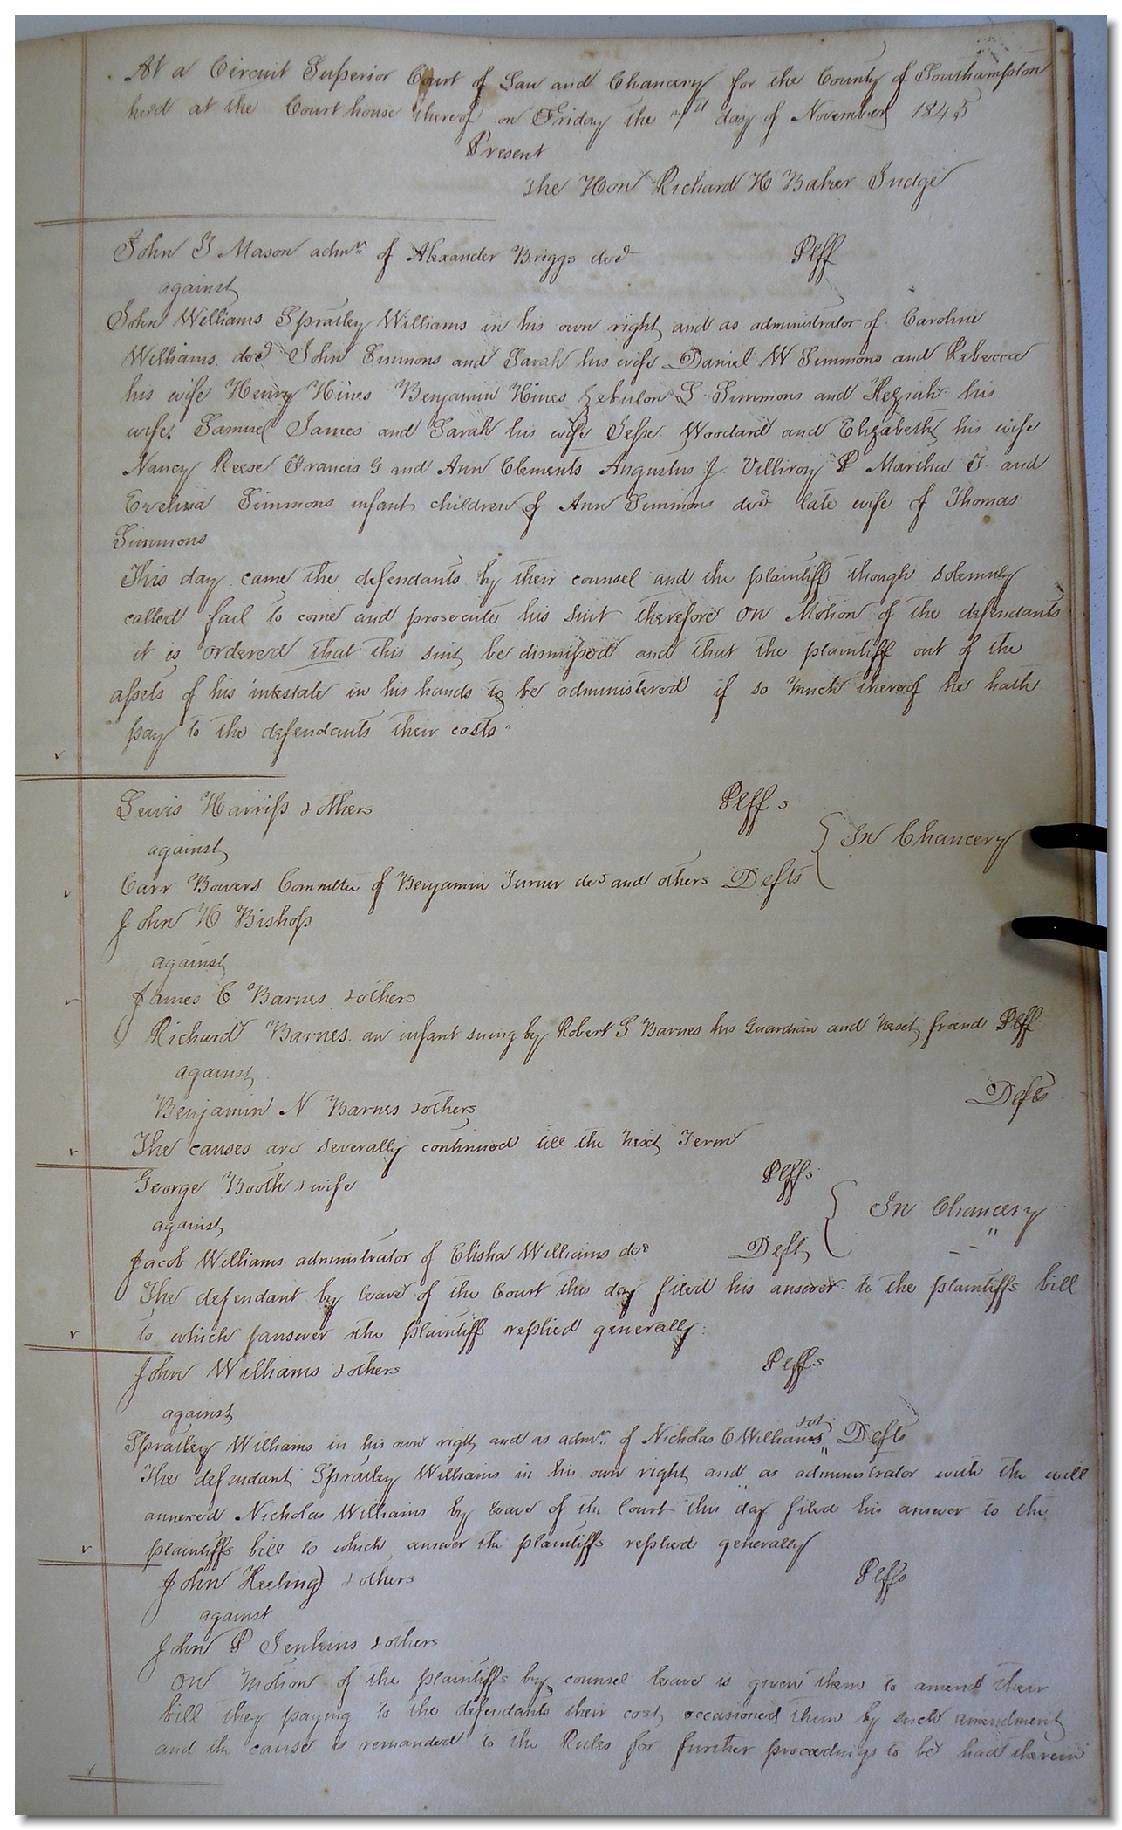 At a Circuit Superior Court of Law and Chancery for the County of Southampton
held at the Court house thereof on Friday the 7th day of November 1845
Present
The Hon Richard H Baker Judge
John Y Mason admr. of Alexander Briggs decd Plff
against
John Williams Spratley Williams in his own right and as administrator of Caroline
Williams decd John Simmons and Sarah his wife Daniel W Simmons and Rebecca
his wife Henry Hines Benjamin Hines Zebulon S Simmons and Keziah his
wife Samuel James and Sarah his wife Jesse Woodard and Elizabeth his wife
Nancy Reese Francis G and Ann Clements Augustus J. Villiroy P Martha T and
Evelina Simmons infant children of Ann Simmons decd late wife of Thomas
Simmons
This day came the defendants by their counsel and the plaintiff though solemnly
called fail to come and prosecute his suit therefore on Motion of the defendants
it is ordered that this suit be dismissed and that the plaintiff out of the
assets of his intestate in his hands to be administered if so much thereof he hath
pay to the defendants their costs
Lewis Harriss & others Plffs
against
In Chancery
Carr Bowers Committee of Benjamin Turner decd and others Defts
John H Bishop
against
James C Barnes & others
Richard Barnes an infant suing by Robert S Barnes his Guardian and next friend Plff
against
Benjamin N Barnes & others Defts
The causes are severally continued till the next Term
George Booth & wife Plffs
against
In Chancery
Jacob Williams administrator of Elisha Williams decd Deft
The defendant by leave of the Court this day filed his answer to the plaintiffs bill
to which answer the plaintiff replied generally.
John Williams & others Plffs
against
Spratley Williams in his own right and as admr. of Nicholas C Williams Defts
The defendant Spratley Williams in his own right and as administrator with the will
annexed Nicholas Williams by leave of the Court this day filed his answer to the
plaintiffs bill to which answer the plaintiffs replied generally
John Keeling & others Plffs
against
John P Jenkins & others
On Motion of the plaintiffs by counsel leave is given them to amend their
bill they paying to the defendants their cost occasioned them by such amendment
and the cause is remanded to the Rules for further proceedings to be had therein